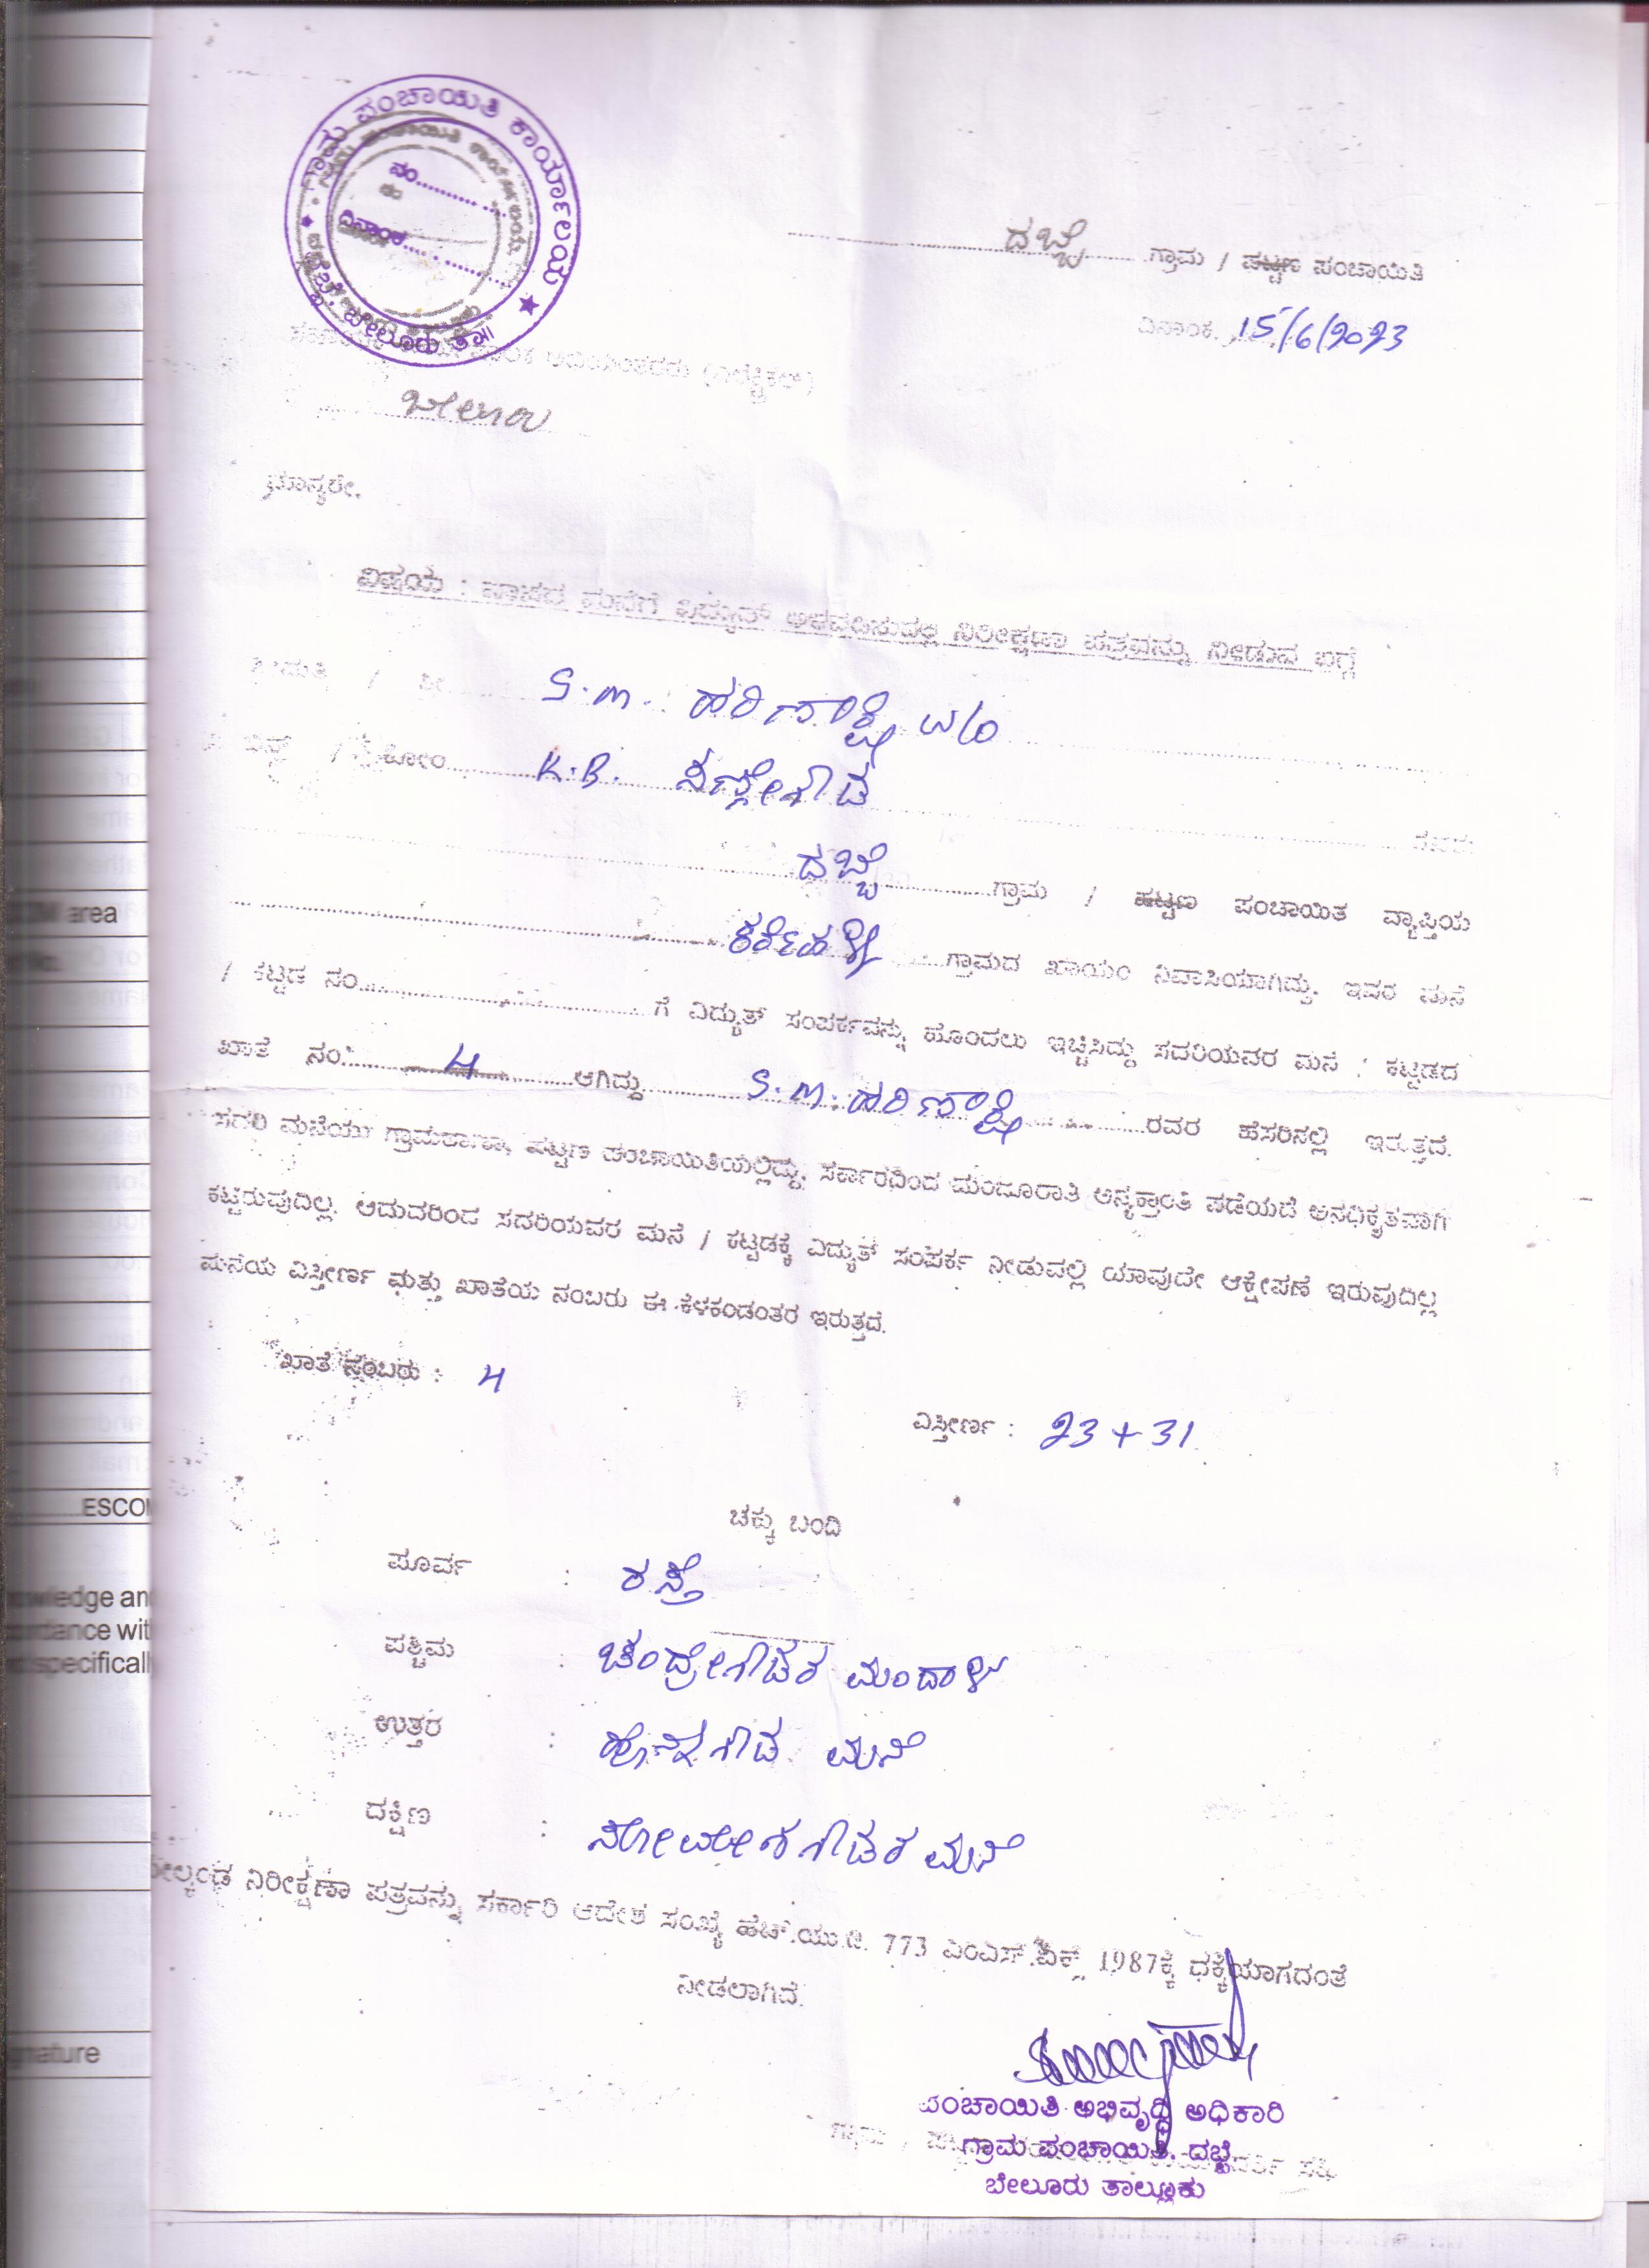 ಗ್ರಾಮ ಪಂಚಾಯಿತಿ ಕಾರ್ಯಾಲಯ
ನಂ
ದಿನಾಂಕ
ದಬ್ಬೆ, ಬೇಲೂರು ತಾ॥
ದಬ್ಬೆ ಗ್ರಾಮ / ಪಟ್ಟಣ ಪಂಚಾಯಿತಿ
ದಿನಾಂಕ. 15/6/2023
(ಎಲೆಕ್ಟ್ರಿಕಲ್)
ಮಾನ್ಯರೇ,
ವಿಷಯ : ವಾಸದ ಮನೆಗೆ ವಿದ್ಯುತ್ ಅಳವಡಿಸುವಲ್ಲಿ ನಿರೀಕ್ಷಣಾ ಪತ್ರವನ್ನು ನೀಡುವ ಬಗ್ಗೆ
ಶ್ರೀಮತಿ / ಶ್ರೀ S.M. ಹರಿಣಾಕ್ಷಿ W/O
ಬಿನ್ / ಕೋಂ K.B.
ದಬ್ಬೆ ಗ್ರಾಮ / ಪಟ್ಟಣ ಪಂಚಾಯಿತ ವ್ಯಾಪ್ತಿಯ
ಕರ್ಕಿಹಳ್ಳಿ ಗ್ರಾಮದ ಖಾಯಂ ನಿವಾಸಿಯಾಗಿದ್ದು, ಇವರ ಮನೆ
/ ಕಟ್ಟಡ ನಂ ಗೆ ವಿದ್ಯುತ್ ಸಂಪರ್ಕವನ್ನು ಹೊಂದಲು ಇಚ್ಚಿಸಿದ್ದು ಸದರಿಯವರ ಮನೆ / ಕಟ್ಟಡದ
ಖಾತೆ ನಂ. 4 ಆಗಿದ್ದು S.M. ಹರಿಣಾಕ್ಷಿ ರವರ ಹೆಸರಿನಲ್ಲಿ ಇರುತ್ತದೆ.
ಸದರಿ ಮನೆಯು ಗ್ರಾಮಠಾಣಾ, ಪಟ್ಟಣ ಪಂಚಾಯಿತಿಯಲ್ಲಿದ್ದು, ಸರ್ಕಾರದಿಂದ ಮಂಜೂರಾತಿ ಅನ್ಯಕ್ರಾಂತಿ ಪಡೆಯದೆ ಅನಧಿಕೃತವಾಗಿ
ಕಟ್ಟಿರುವುದಿಲ್ಲ. ಆದುವರಿಂದ ಸದರಿಯವರ ಮನೆ / ಕಟ್ಟಡಕ್ಕೆ ವಿದ್ಯುತ್ ಸಂಪರ್ಕ ನೀಡುವಲ್ಲಿ ಯಾವುದೇ ಆಕ್ಷೇಪಣೆ ಇರುವುದಿಲ್ಲ
ಮನೆಯ ವಿಸ್ತೀರ್ಣ ಮತ್ತು ಖಾತೆಯ ನಂಬರು ಈ ಕೆಳಕಂಡಂತರ ಇರುತ್ತದೆ.
ಖಾತೆ ನಂಬರು : 4
ವಿಸ್ತೀರ್ಣ : 23 + 31
ಚಕ್ಕು ಬಂದಿ
ಪೂರ್ವ : ರಸ್ತೆ
ಪಶ್ಚಿಮ : ಚಂದ್ರೇಗೌಡರ
ಉತ್ತರ : ಹೊನ್ನೇಗೌಡ ಮನೆ
ದಕ್ಷಿಣ : ಸೋಮೇಶಗೌಡರ ಮನೆ
ಮೇಲ್ಕಂಡ ನಿರೀಕ್ಷಣಾ ಪತ್ರವನ್ನು ಸರ್ಕಾರಿ ಆದೇಶ ಸಂಖ್ಯೆ ಹೆಚ್.ಯು.ಡಿ. 773 ಎಂಎನ್.ಎಕ್ಸ್ 1987ಕ್ಕೆ ಧಕ್ಕೆಯಾಗದಂತೆ
ನೀಡಲಾಗಿದೆ.
ಪಂಚಾಯಿತಿ ಅಭಿವೃದ್ಧಿ ಅಧಿಕಾರಿ
ಗ್ರಾಮ ಪಂಚಾಯಿತಿ. ದಬ್ಬೆ
ಬೇಲೂರು ತಾಲ್ಲೂಕು
area
ESCOM
specificall